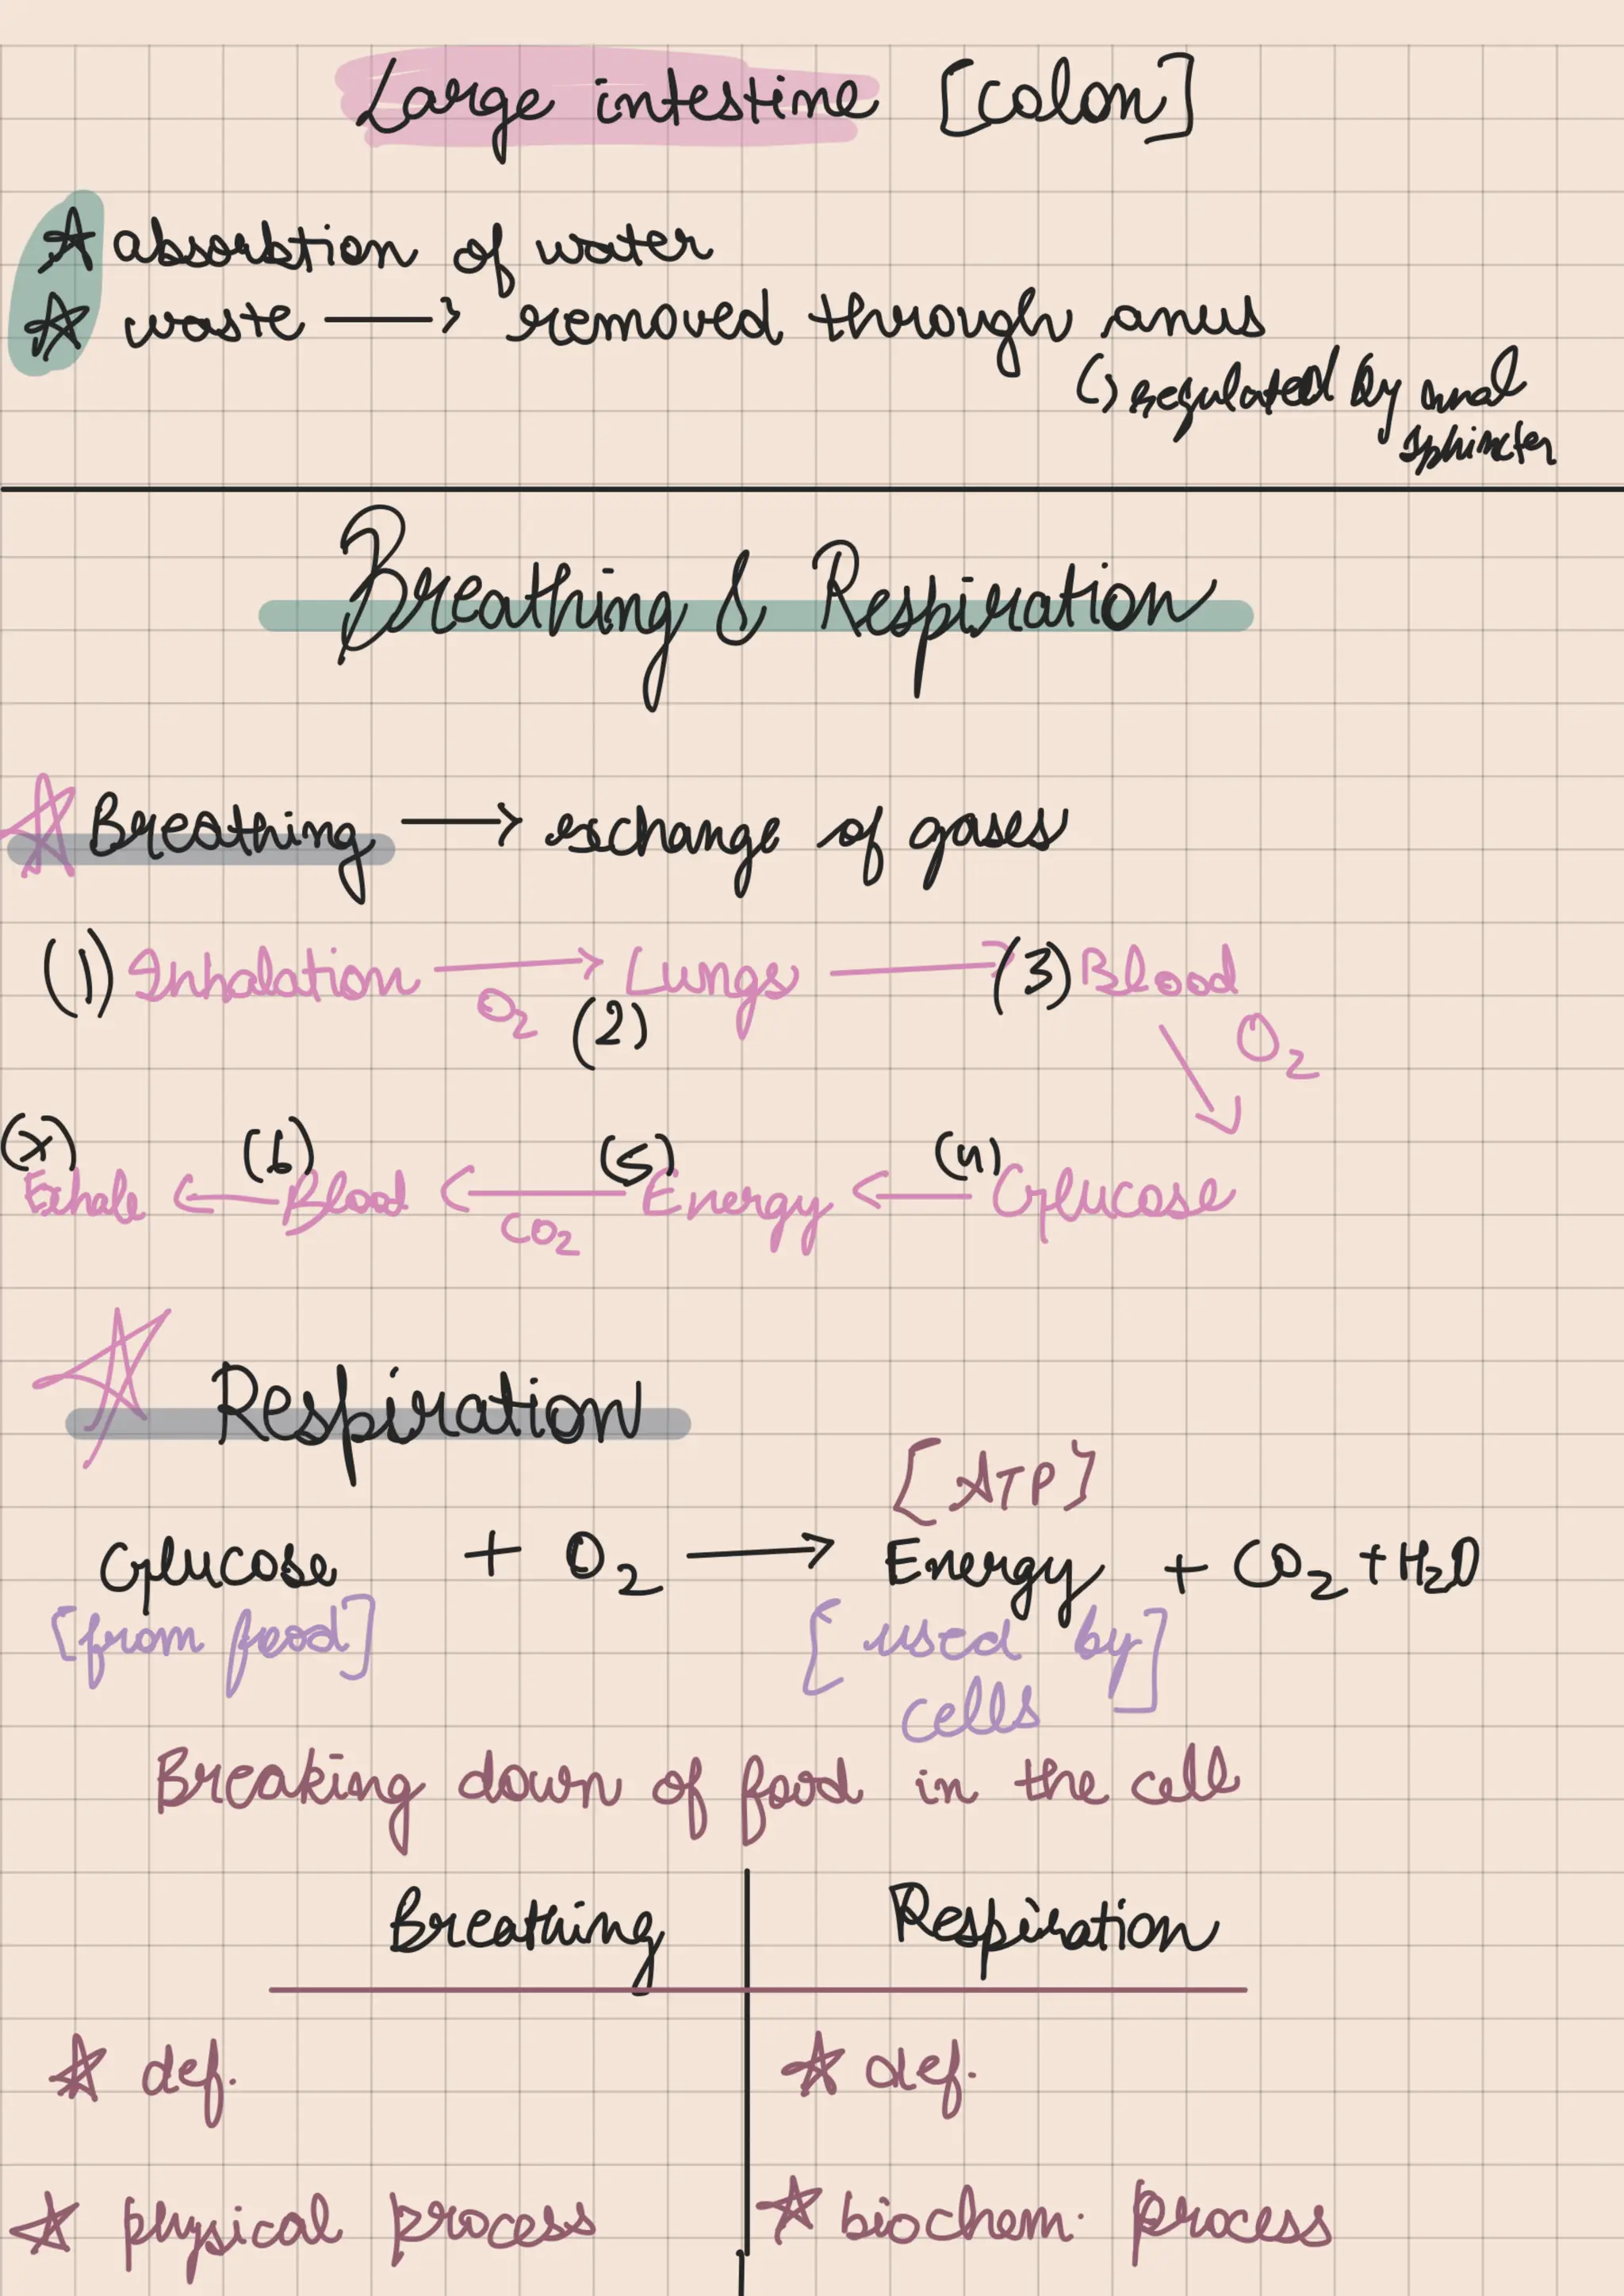 Large intestine [colon]
☆ absorbtion of water
☆ waste → removed through anus
↳ regulated by anal
sphincter
Breathing & Respiration
☆ Breathing → exchange of gases
(1) Inhalation → Lungs → (3) Blood
O₂ (2) O₂
(7) (6) (5) (4)
Exhale ← Blood ← Energy ← Glucose
CO₂
☆ Respiration
[ATP]
Glucose + O₂ → Energy + CO₂ + H₂O
[from food] [used by]
cells
Breaking down of food in the cell
Breathing Respiration
☆ def. ☆ def.
☆ physical process ☆ biochem. process